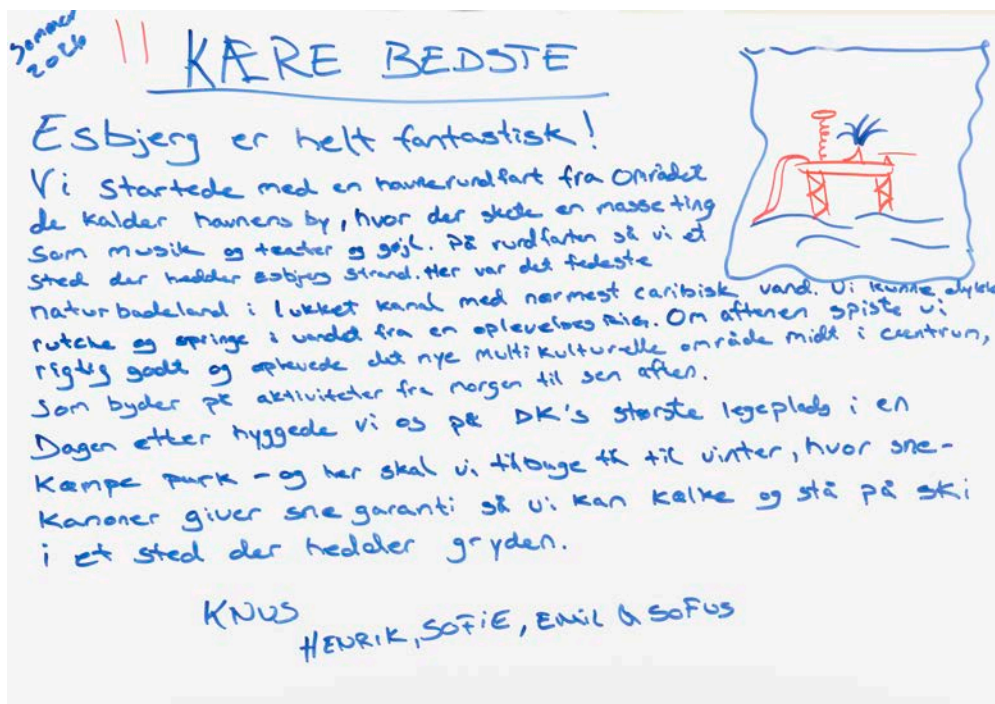 Sommer
2026
KÆRE BEDSTE
Esbjerg er helt fantastisk!
Vi startede med en havnerundfart fra området
de kalder havnens by, hvor der skete en masse ting
som musik og teater og gøjl. På rundfarten så vi et
sted der hedder Esbjerg Strand. Her var det fedeste
naturbadeland i lukket kanal med nærmest caribisk vand. Vi kunne dykke
rutche og springe i vandet fra en oplevelses rig. Om aftenen spiste vi
rigtig godt og oplevede det nye multikulturelle område midt i centrum,
som byder på aktiviteter fra morgen til sen aften.
Dagen efter hyggede vi os på DK's største legeplads i en
kæmpe park - og her skal vi tilbage til til vinter, hvor sne-
kanoner giver sne garanti så vi kan kælke og stå på ski
i et sted der hedder gryden.
KNUS
HENRIK, SOFIE, EMIL & SOFUS